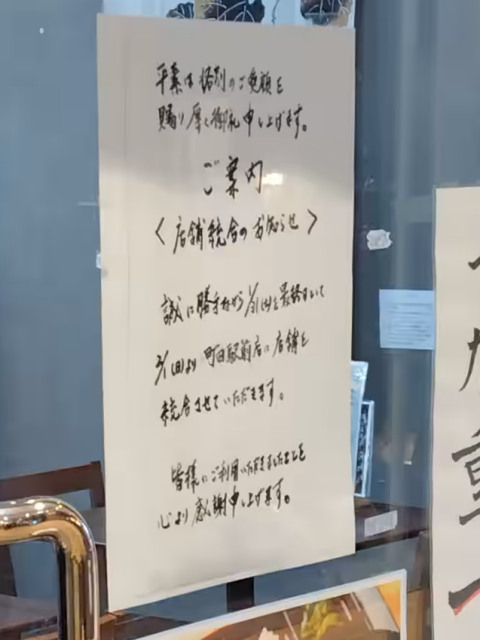 平素は格別のご愛顧を
賜り厚く御礼申し上げます。
ご案内
〈店舗統合のお知らせ〉
誠に勝手ながら 1/31(土)を最終日として
2/1(日)より 町田駅前店に店舗を
統合させていただきます。
皆様にご利用いただきましたことを
心より感謝申し上げます。
重